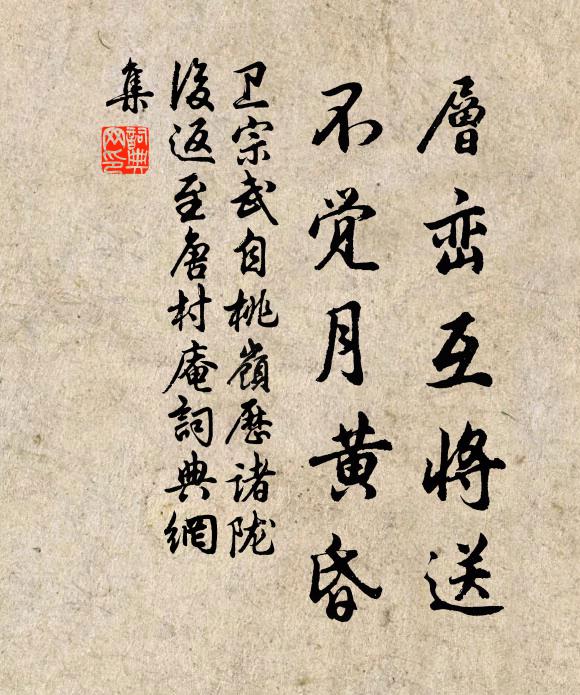 層峦互將送
不觉月黄昏
卫宗武自桃嶺歷诸陇
後返至唐村庵詞典網
集
詞典
网印